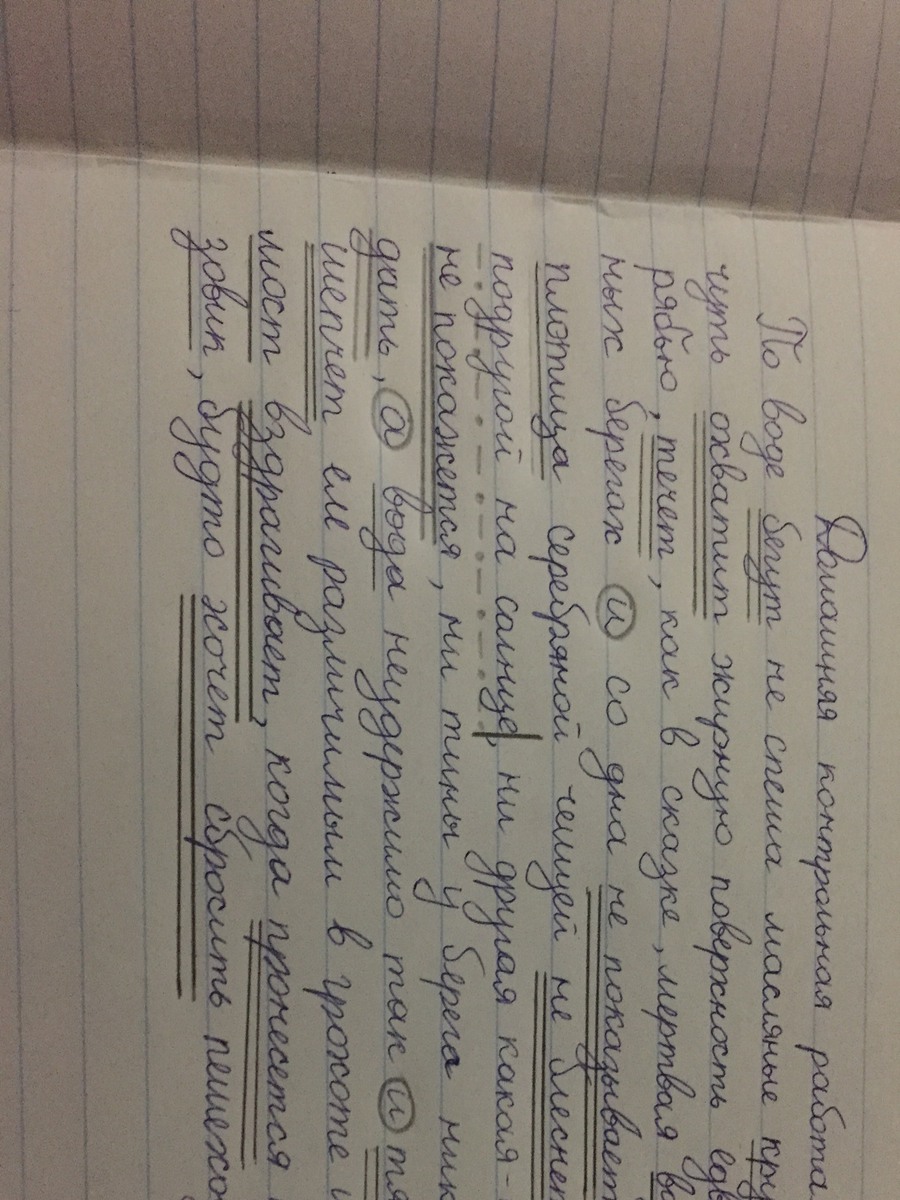 Домашняя контрольная работа
По воде бегут не спеша масляные кру
чуть охватит жирную поверхность едв
рябью, течет, как в сказке, мертвая во
мых берегах и со дна не показывает
плотица серебряной чешуей не блеснет
подругой на солнце, ни другая какая-
не покажется, ни тины у берега ник
дать, а вода неудержимо так и тя
шепчет еле различимым в грохоте
мост вздрагивает, когда пронесется
зовик, будто хочет сбросить пешехо